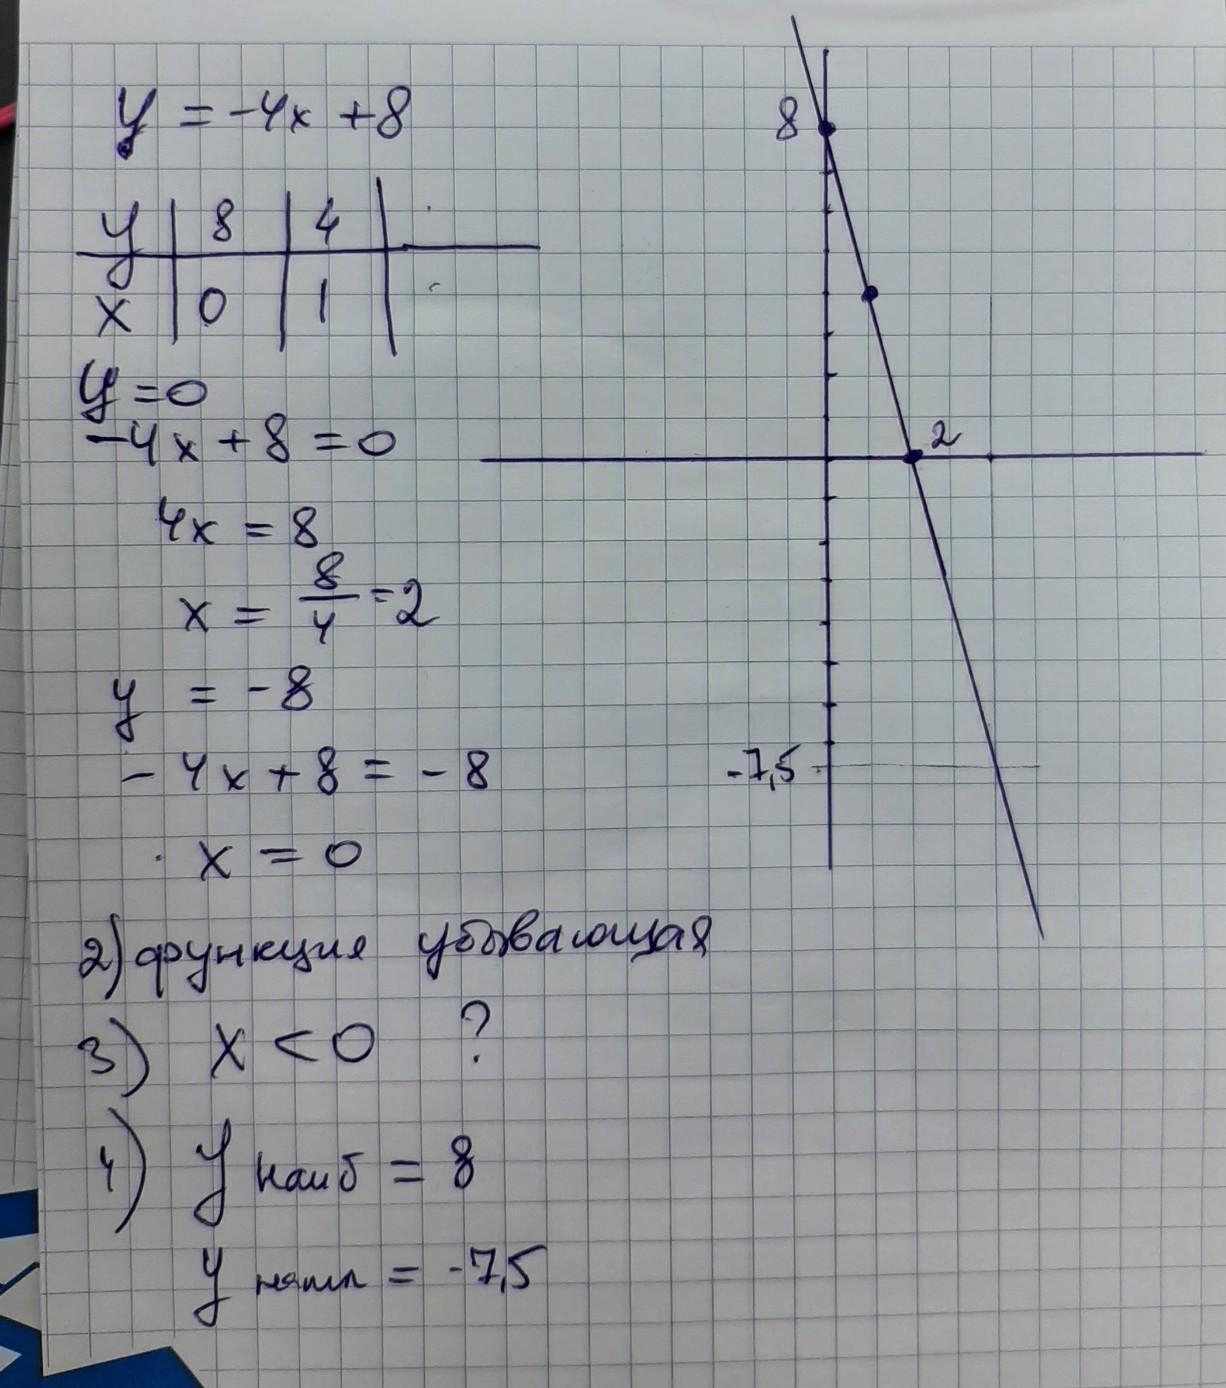 y = -4x + 8
y | 8 | 4 |
x | 0 | 1 |
y = 0
-4x + 8 = 0
4x = 8
x = 8/4 = 2
y = -8
- 4x + 8 = - 8
x = 0
2) функция убывающая
3) x < 0 ?
4) y наиб = 8
y наим = -7,5
8
2
-7,5